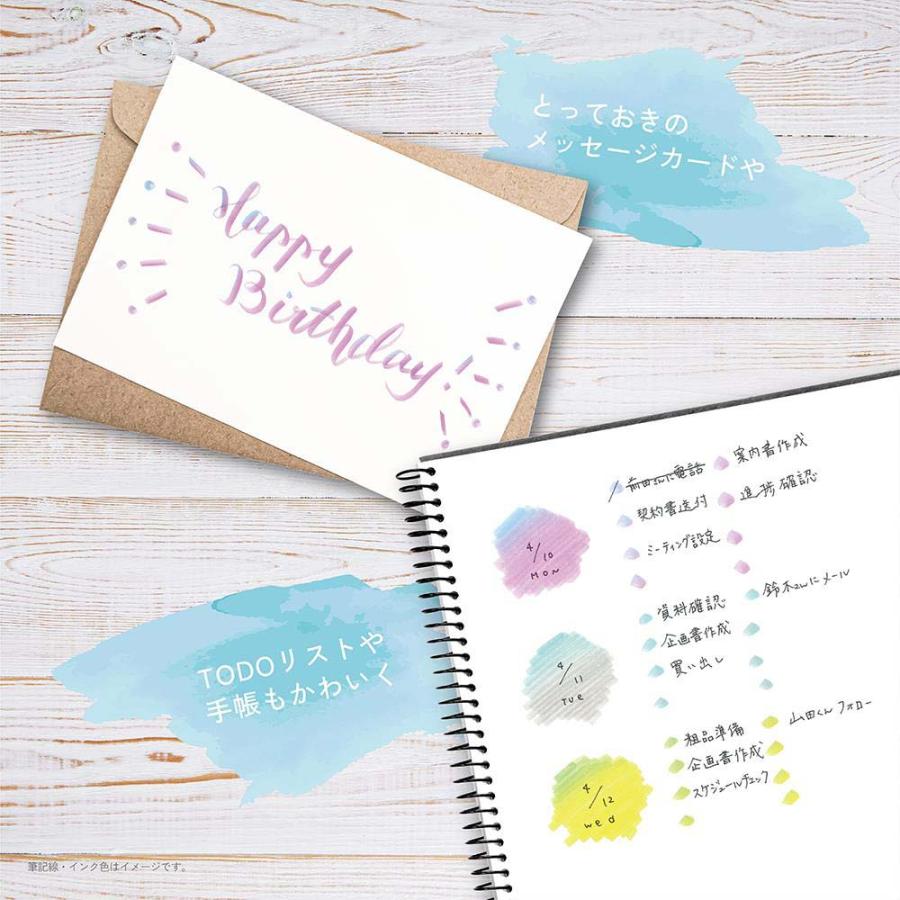 とっておきの
メッセージカードや
Happy
Birthday!
TODOリストや
手帳もかわいく
4/10
MON
前田さんに電話
案内書作成
契約書送付
進捗確認
ミーティング設定
4/11
TUE
資料確認
鈴木さんにメール
企画書作成
買い出し
4/12
wed
粗品準備
山田くんフォロー
企画書作成
スケジュールチェック
筆記線・インク色はイメージです。